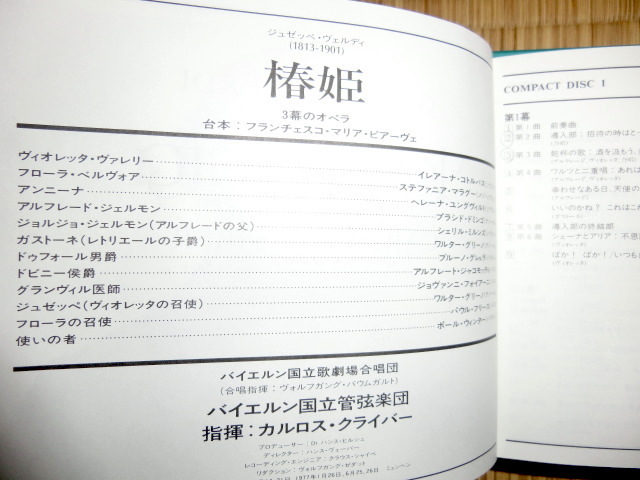 ジュゼッペ・ヴェルディ
(1813-1901)
椿姫
3幕のオペラ
台本：フランチェスコ・マリア・ピアーヴェ
ヴィオレッタ・ヴァレリー……イレアーナ・コトルバス
フローラ・ベルヴォア……ステファニア・マラグー
アンニーナ……ヘレーナ・ユングヴィルト
アルフレード・ジェルモン……プラシド・ドミンゴ
ジョルジョ・ジェルモン(アルフレードの父)……シェリル・ミルンズ
ガストーネ(レトリエールの子爵)……ワルター・グリーノ
ドゥフォール男爵……ブルーノ・
ドビニー侯爵……アルフレート・ジャコモッティ
グランヴィル医師……ジョヴァンニ・フォイアーニ
ジュゼッペ(ヴィオレッタの召使)……ワルター・グリーノ
フローラの召使……パウル・フリース
使いの者……ポール・ウィンター
バイエルン国立歌劇場合唱団
(合唱指揮：ヴォルフガング・バウムガルト)
バイエルン国立管弦楽団
指揮：カルロス・クライバー
プロデューサー：Dr.ハンス・ヒルシュ
ディレクター：ハンス・ウェーバー
レコーディング・エンジニア：クラウス・シャイベ
リダクション：ヴォルフガング・
1977年1月26日, 6月25, 26日 ミュンヘン
COMPACT DISC 1
第1幕
1 第1曲 前奏曲
2 第2曲 導入部：招待の時はと
3 第3曲 乾杯の歌：酒を汲もう
4 第4曲 ワルツと二重唱：あれは
5 幸わせなある日、天使の
6 いいのかね？ これはこれ
7 第5曲 導入部の終結部
8 第6曲 シェーナとアリア：不思
9 ばか！ ばか！/いつも